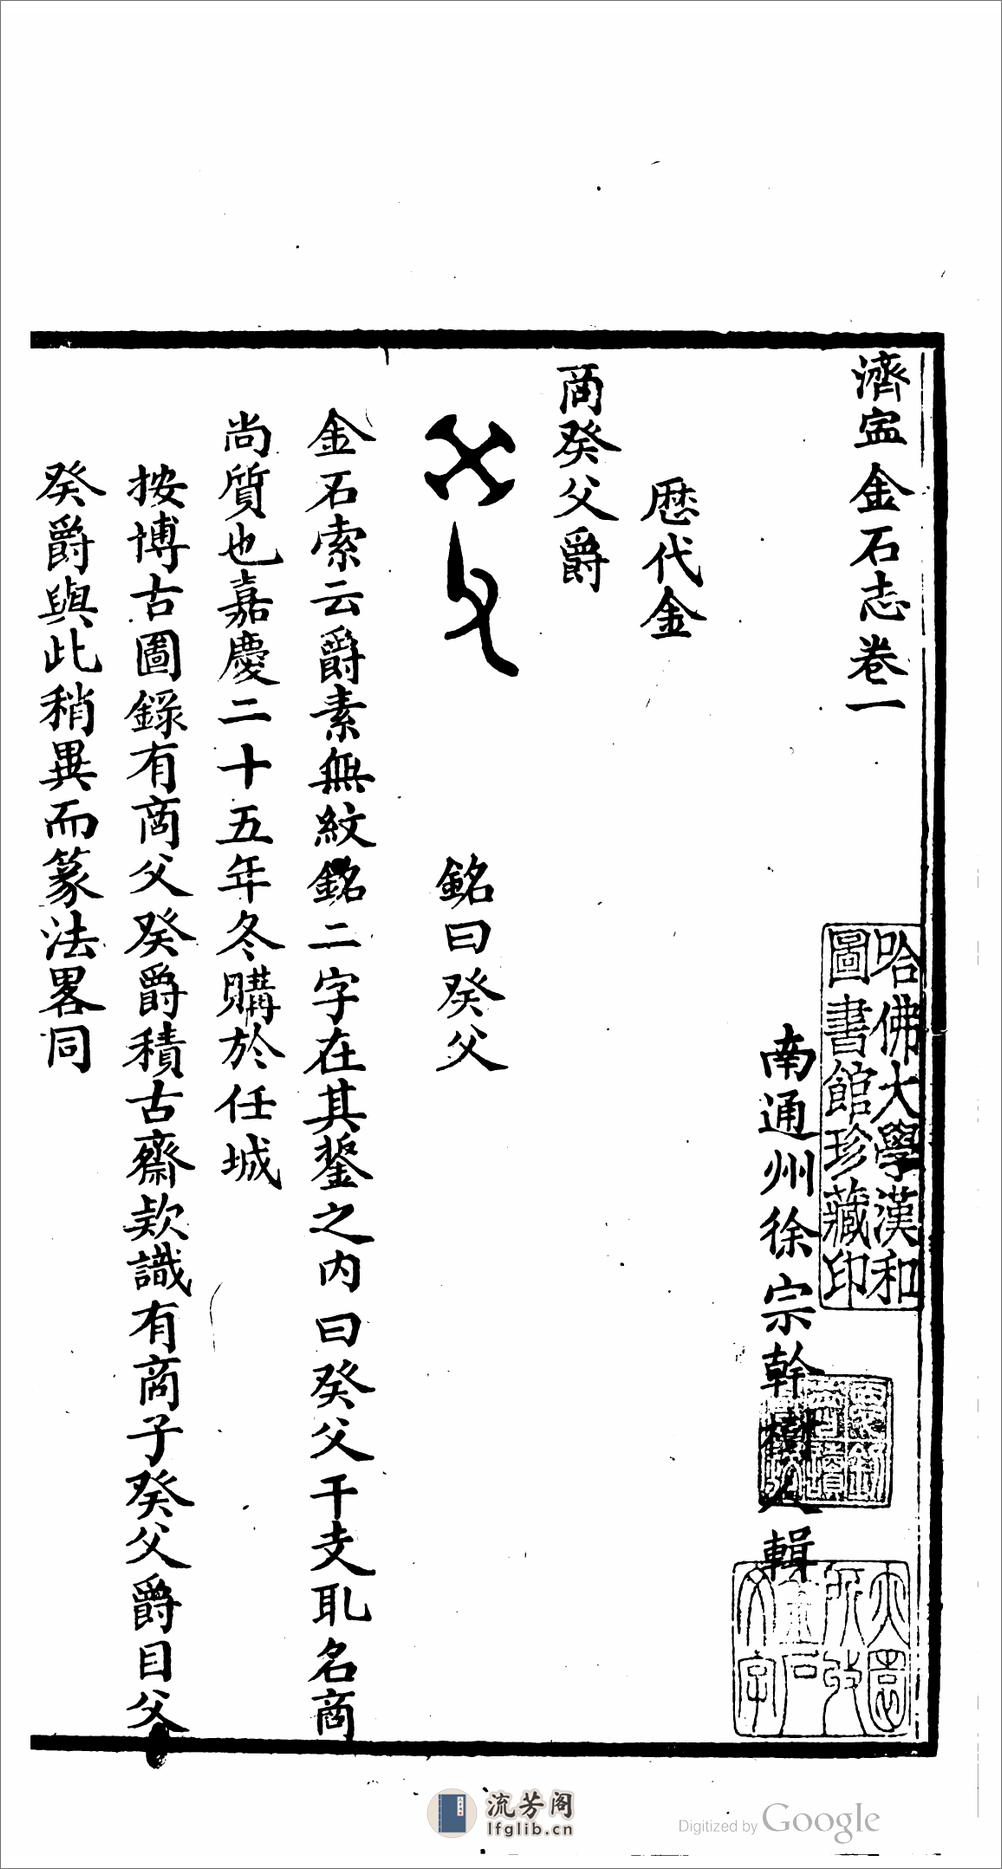 濟寍金石志卷一
南通州徐宗幹樹人輯
歷代金
商癸父爵
銘曰癸父
金石索云爵素無紋銘二字在其鋬之内曰癸父干支取名商
尚質也嘉慶二十五年冬購於任城
按博古圖錄有商父癸爵積古齋款識有商子癸父爵目父
癸爵與此稍異而篆法畧同
哈佛大學漢和
圖書館珍藏印
流芳阁
lfglib.cn
Digitized by Google